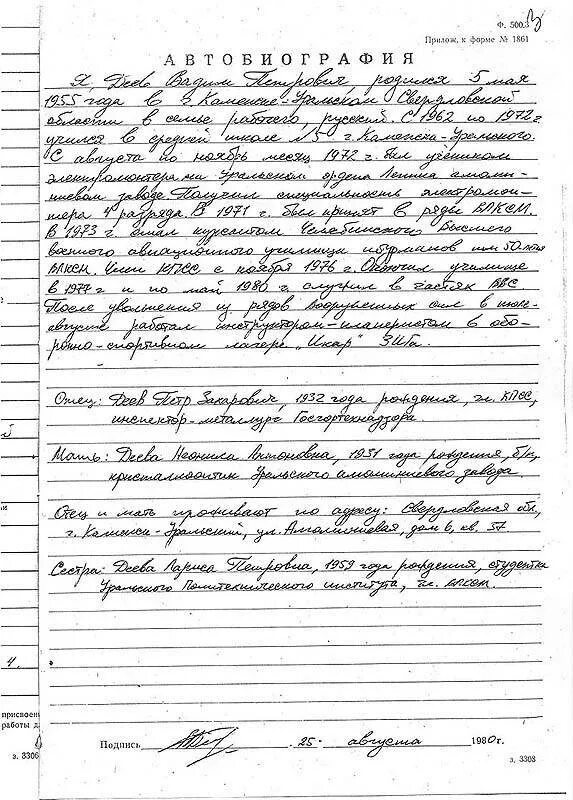 Ф. 500.3
3
Прилож. к форме № 1861
АВТОБИОГРАФИЯ
Я, Деев Вадим Петрович, родился 5 мая
1955 года в г. Каменске-Уральском Свердловской
области в семье рабочего, русский. С 1962 по 1972 г
учился в средней школе №5 г. Каменска-Уральского.
С августа по ноябрь месяц 1972 г. был учеником
электромонтера на Уральском ордена Ленина алюми-
ниевом заводе. Получил специальность электромон-
тера 4 разряда. В 1971 г. был принят в ряды ВЛКСМ.
В 1973 г. стал курсантом Челябинского Высшего
военного авиационного училища штурманов им 50-летия
ВЛКСМ. Член КПСС с ноября 1976 г. Окончил училище
в 1977 г и по май 1980 г служил в частях ВВС.
После увольнения из рядов вооруженных сил в июле-
августе работал инструктором-планеристом в обо-
ронно-спортивном лагере „Икар"
Отец: Деев Петр Захарович, 1932 года рождения, чл. КПСС,
инспектор-металлург Госгортехнадзора
Мать: Деева Неонила Антоновна, 1931 года рождения, б/п,
Уральского алюминиевого завода.
Отец и мать проживают по адресу: Свердловская обл,
г. Каменск-Уральский, ул. Алюминиевая, дом 6, кв. 37
Сестра: Деева Лариса Петровна, 1959 года рождения, студентка
Уральского Политехнического института, чл. ВЛКСМ.
5
4.
присвоен
работы д
з. 3306
Подпись 25 августа 1980 г.
з. 3308